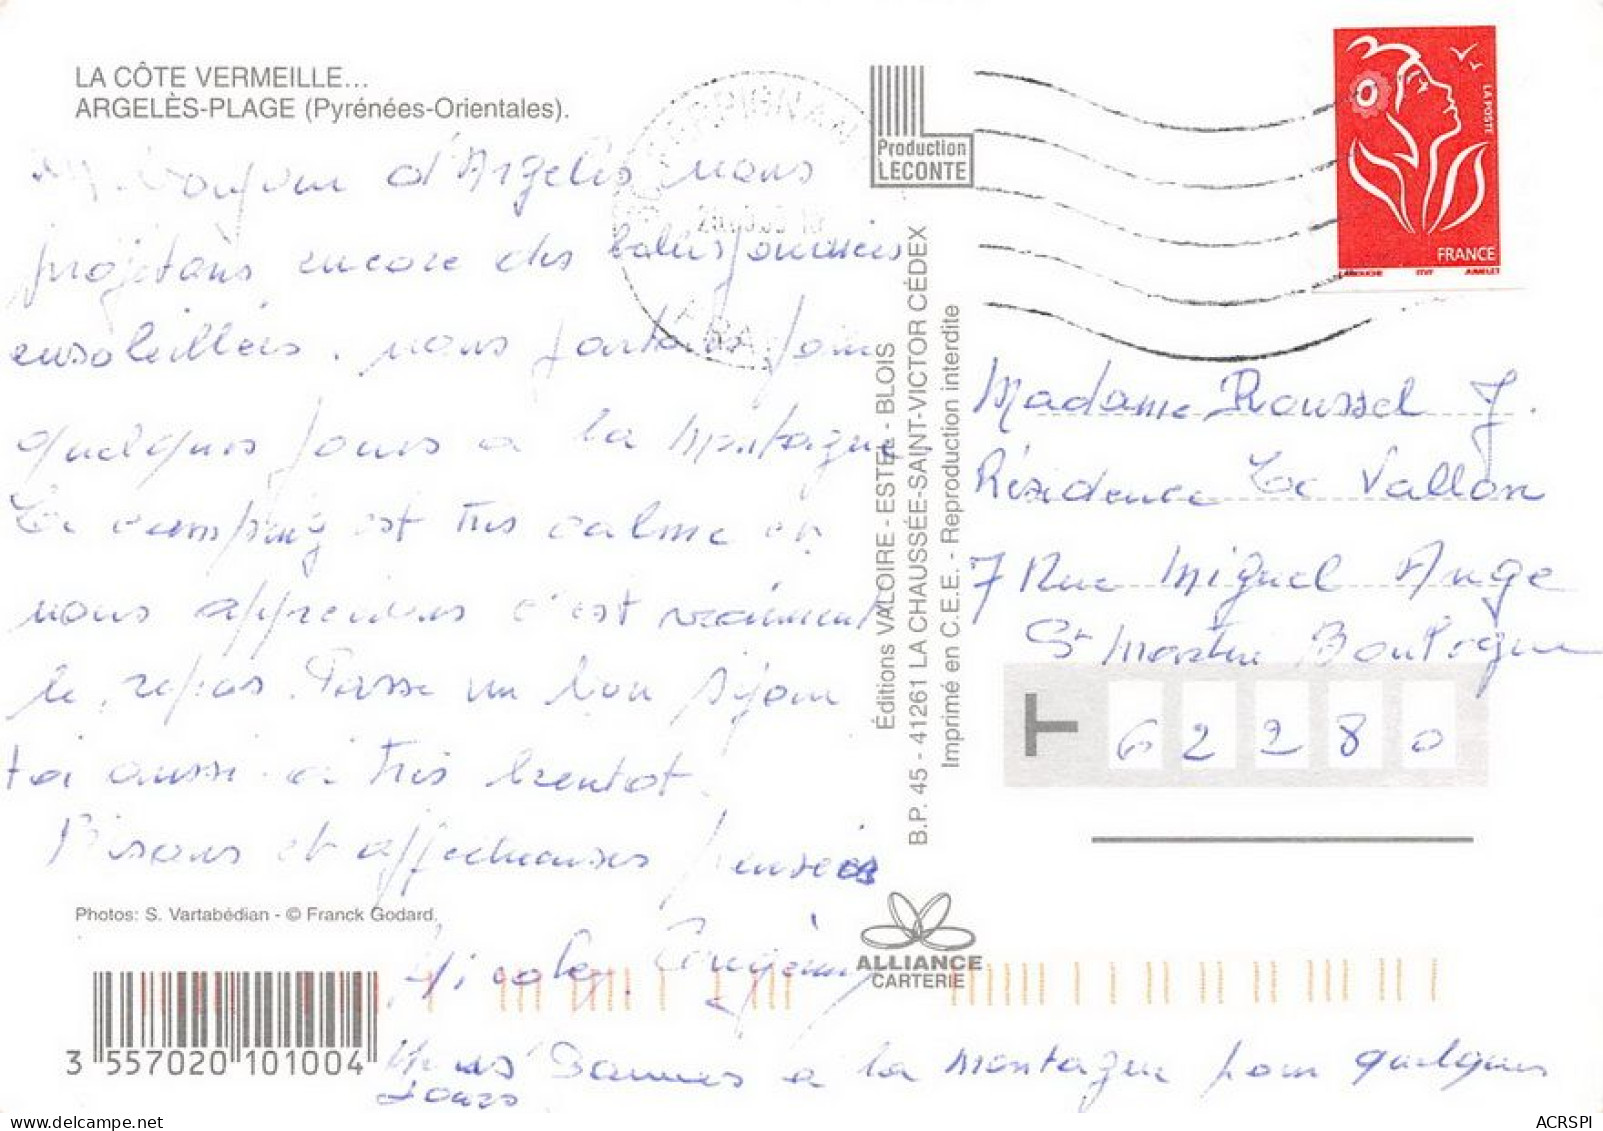 LA CÔTE VERMEILLE...
ARGELÈS-PLAGE (Pyrénées-Orientales).
Bonjour d'Argelès nous
projetons encore des belles journées
ensoleillées. nous partons pour
quelques jours à la montagne.
Le camping est très calme on
nous apprécions c'est vraiment
le repos. Passe un bon séjour
toi aussi à très bientot.
Bisous et affectueuses pensées
Photos: S. Vartabédian - © Franck Godard.
à la montagne pour quelques
jours
3 557020 101004
Production
LECONTE
Éditions VALOIRE - ESTEL - BLOIS
B.P. 45 - 41261 LA CHAUSSÉE-SAINT-VICTOR CÉDEX
Imprimé en C.E.E. - Reproduction interdite
ALLIANCE
CARTERIE
PERPIGNAN
LA POSTE
FRANCE
ITVF
Madame Roussel J.
Résidence Le Vallon
7 Rue Miguel Ange
St Martin Boulogne
T 62280
ACRSPI